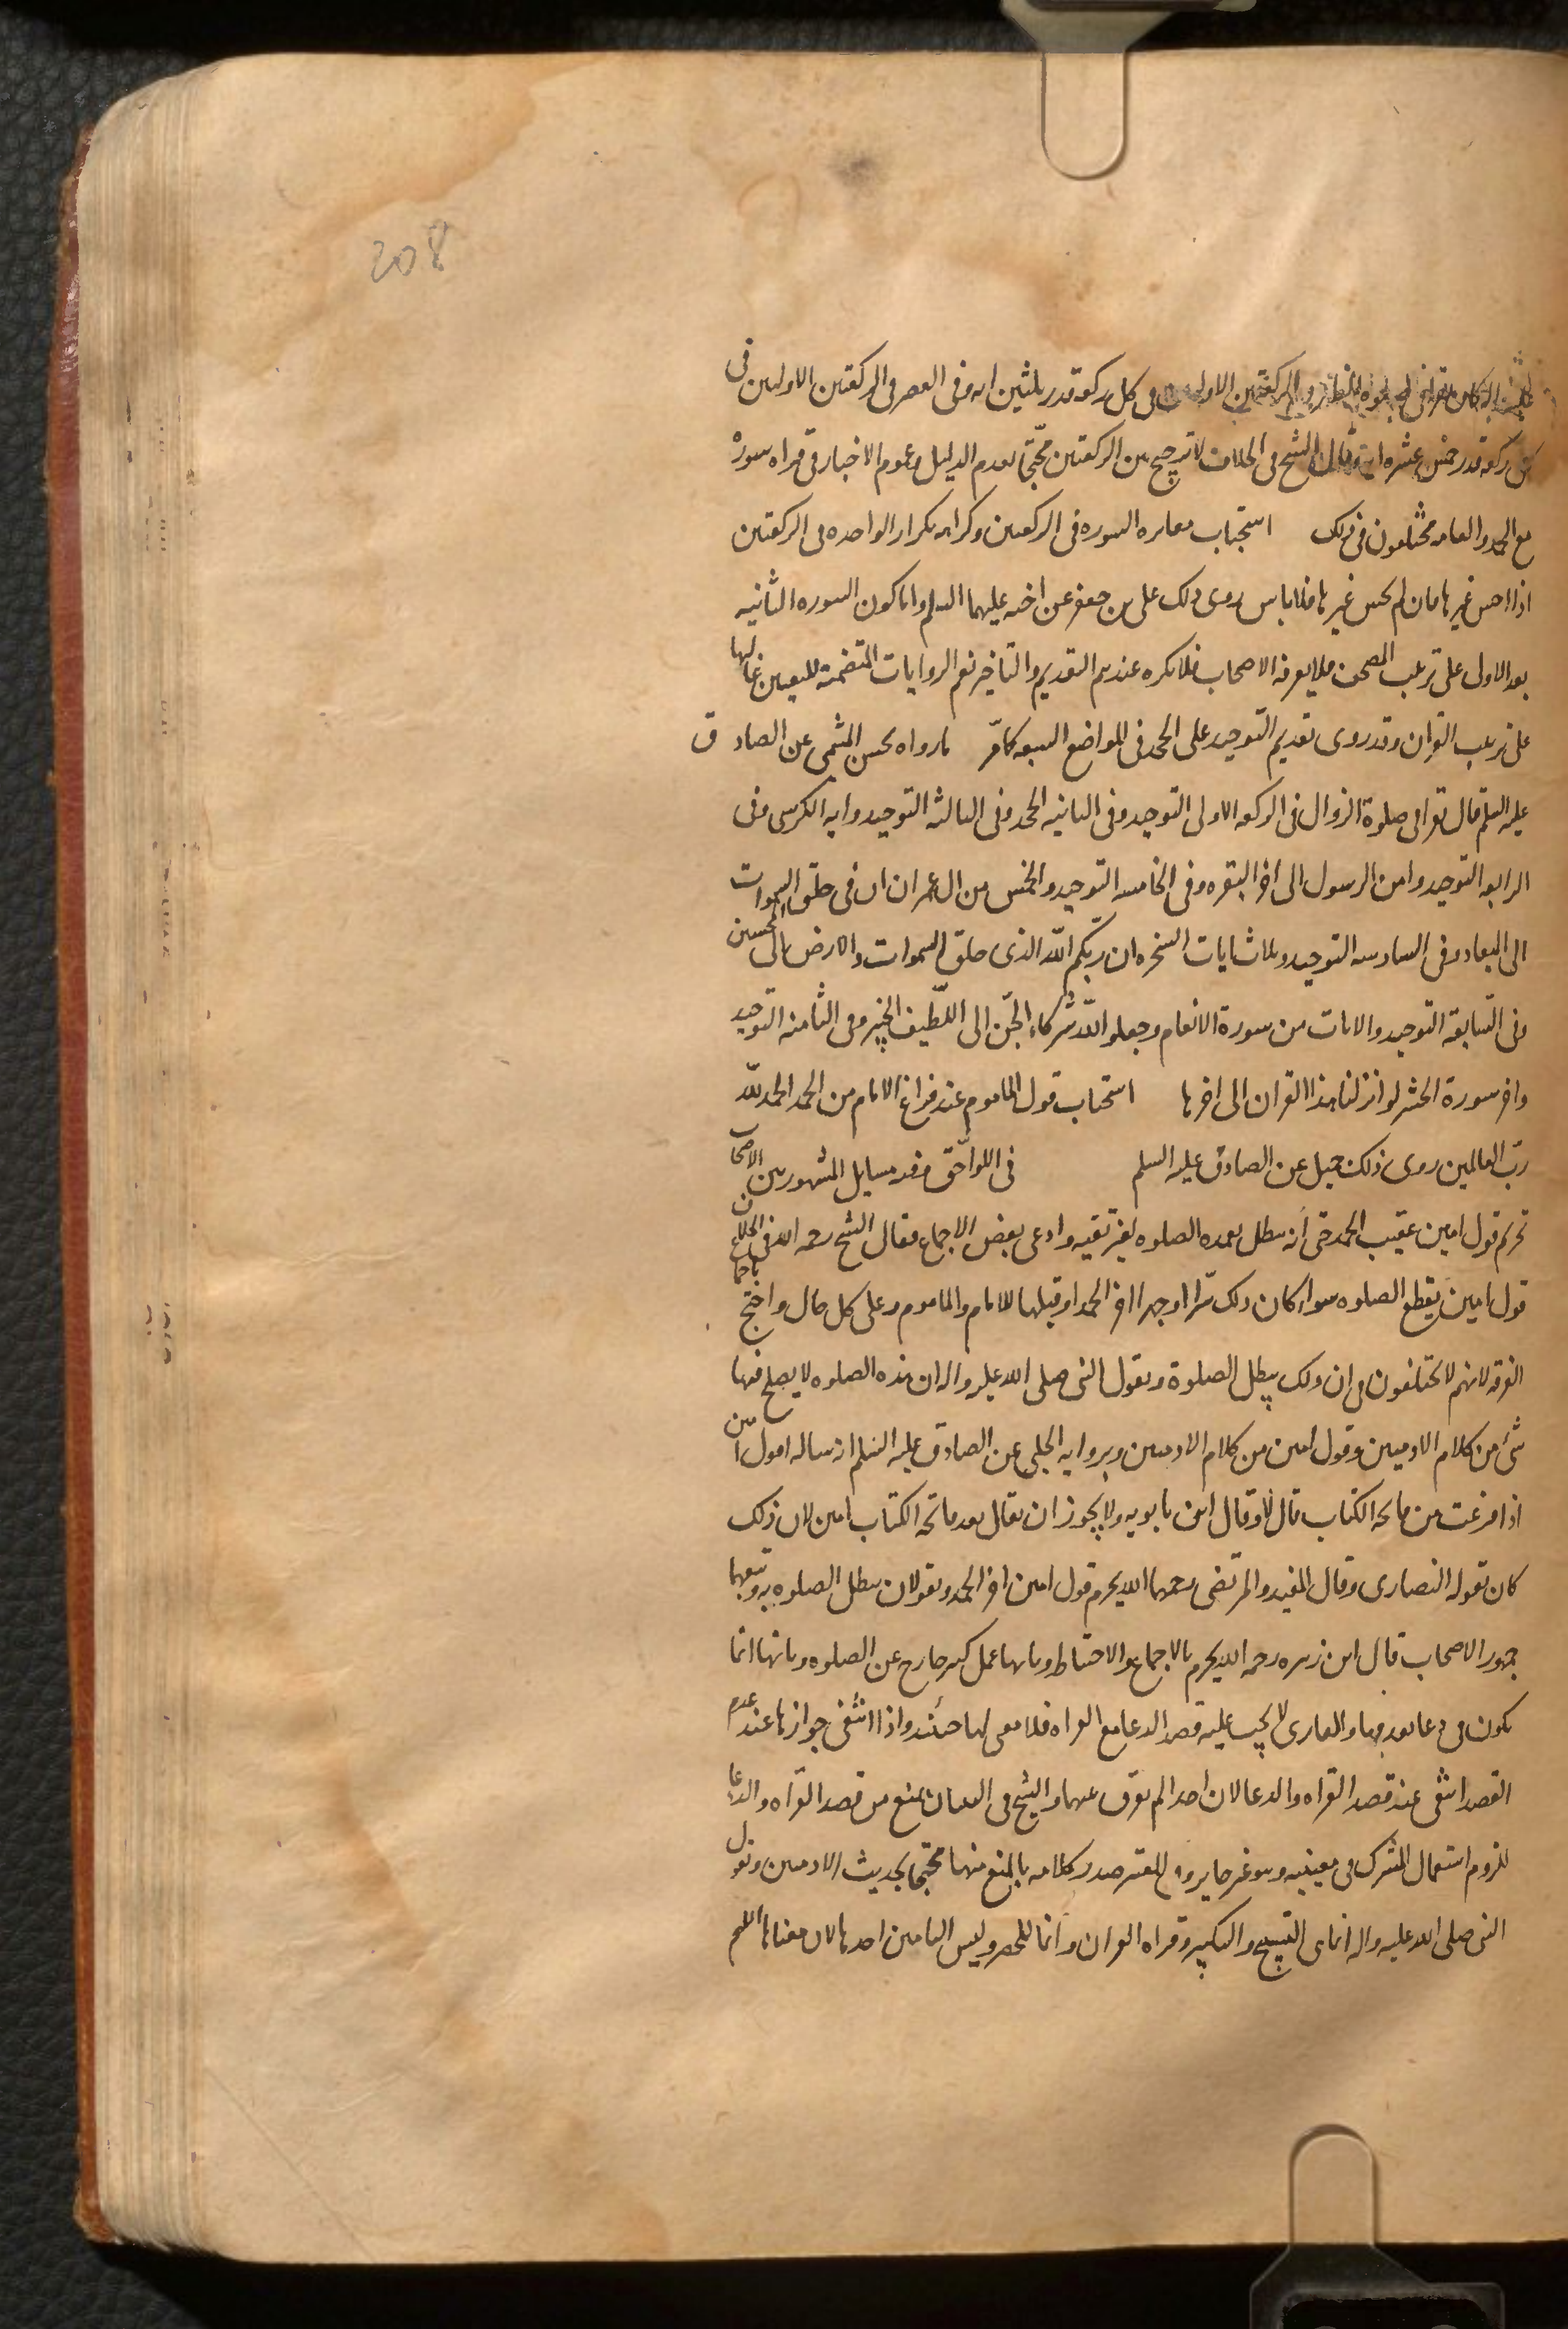 208
كان يقرا فى صلوة الظهر فى الركعتين الاوليين فى كل ركعة قدر ثلثين ايه وفى العصر فى الركعتين الاوليين فى
كل ركعة قدر خمس عشره ايه وقال الشيخ فى الخلاف لا ترجيح بين الركعتين محتجا بعدم الدليل وعموم الاخبار فى قراه سورة
مع الحمد والعامه مختلفون فى ذلك استحباب مغايره السوره فى الركعتين وكراهه تكرار الواحده فى الركعتين
اذا احسن غيرها فان لم يحسن غيرها فلا باس روى ذلك على بن جعفر عن اخيه عليهما السلم واما كون السوره الثانيه
بعد الاولى على ترتيب المصحف فلا يعرفه الاصحاب فلا يكره عندهم التقديم والتاخير نعم الروايات المتضمنة للتعيين غالبها
على ترتيب القران وقد روى تقديم التوحيد على الجحد فى المواضع السبعه كما مرّ ما رواه محسن الميثمى عن الصادق
عليه السلم قال تقرا فى صلوة الزوال فى الركعه الاولى التوحيد وفى الثانيه الجحد وفى الثالثه التوحيد وايه الكرسى وفى
الرابعه التوحيد وامن الرسول الى اخر البقره وفى الخامسه التوحيد والخمس من ال عمران ان فى خلق السموات
الى الميعاد وفى السادسه التوحيد وثلاث ايات السخره ان ربّكم اللّه الذى خلق السموات والارض الى المحسنين
وفى السّابعة التوحيد والايات من سورة الانعام وجعلوا للّه شركاء الجّن الى اللّطيف الخبير وفى الثامنه التوحيد
واخر سورة الحشر لو انزلنا هذا القران الى اخرها استحباب قول الماموم عند فراغ الامام من الحمد الحمد للّه
ربّ العالمين روى ذلك جميل عن الصادق عليه السلم فى اللواحق وفيه مسايل المشهور بين الاصحاب
تحريم قول امين عقيب الحمد حتى انه يبطل تعمده الصلوه لغير تقيه وادعى بعض الاجماع فقال الشيخ رحمه الله فى الخلاف
قول امين يقطع الصلوه سواء كان ذلك سرّا او جهرا اخر الحمد او قبلها للامام والماموم وعلى كل حال واحتج باجماع
الفرقه لانهم لا يختلفون فى ان ذلك يبطل الصلوة وبقول النبى صلى الله عليه واله ان هذه الصلوه لا يصلح فيها
شئ من كلام الادميين وقول امين من كلام الادميين وبروايه الحلبى عن الصادق عليه السلم انه ساله اقول امين
اذا فرغت من فاتحه الكتاب قال لا وقال ابن بابويه ولا يجوز ان يقال بعد فاتحة الكتاب امين لان ذلك
كان تقوله النصارى وقال المفيد والمرتضى رحمهما الله يحرم قول امين اخر الحمد ويقولان يبطل الصلوه به وتبعهما
جمهور الاصحاب قال ابن زهره رحمه الله يحرم بالاجماع والاحتياط وبانها عمل كثير خارج عن الصلوه وبانها انما
يكون فى دعا تقدمها والقارى لا يجب عليه قصد الدعا مع القراه فلا معنى لها حينئذ واذا انتفى جوازها عند عدم
القصد انتفى عند قصد القراه والدعا لان احدا لم يفرق بينهما والشيخ فى التبيان بمنع من قصد القراه والدعا
للزوم استعمال المشترك فى معنييه وهو غير جايز وفى المعتبر صدر كلامه بالمنع منها محتجا بحديث الادميين وبقول
النبى صلى الله عليه واله انما هى التسبيح والتكبير وقراه القران وانما للحصر وليس التامين احدها لان معناها اللهم